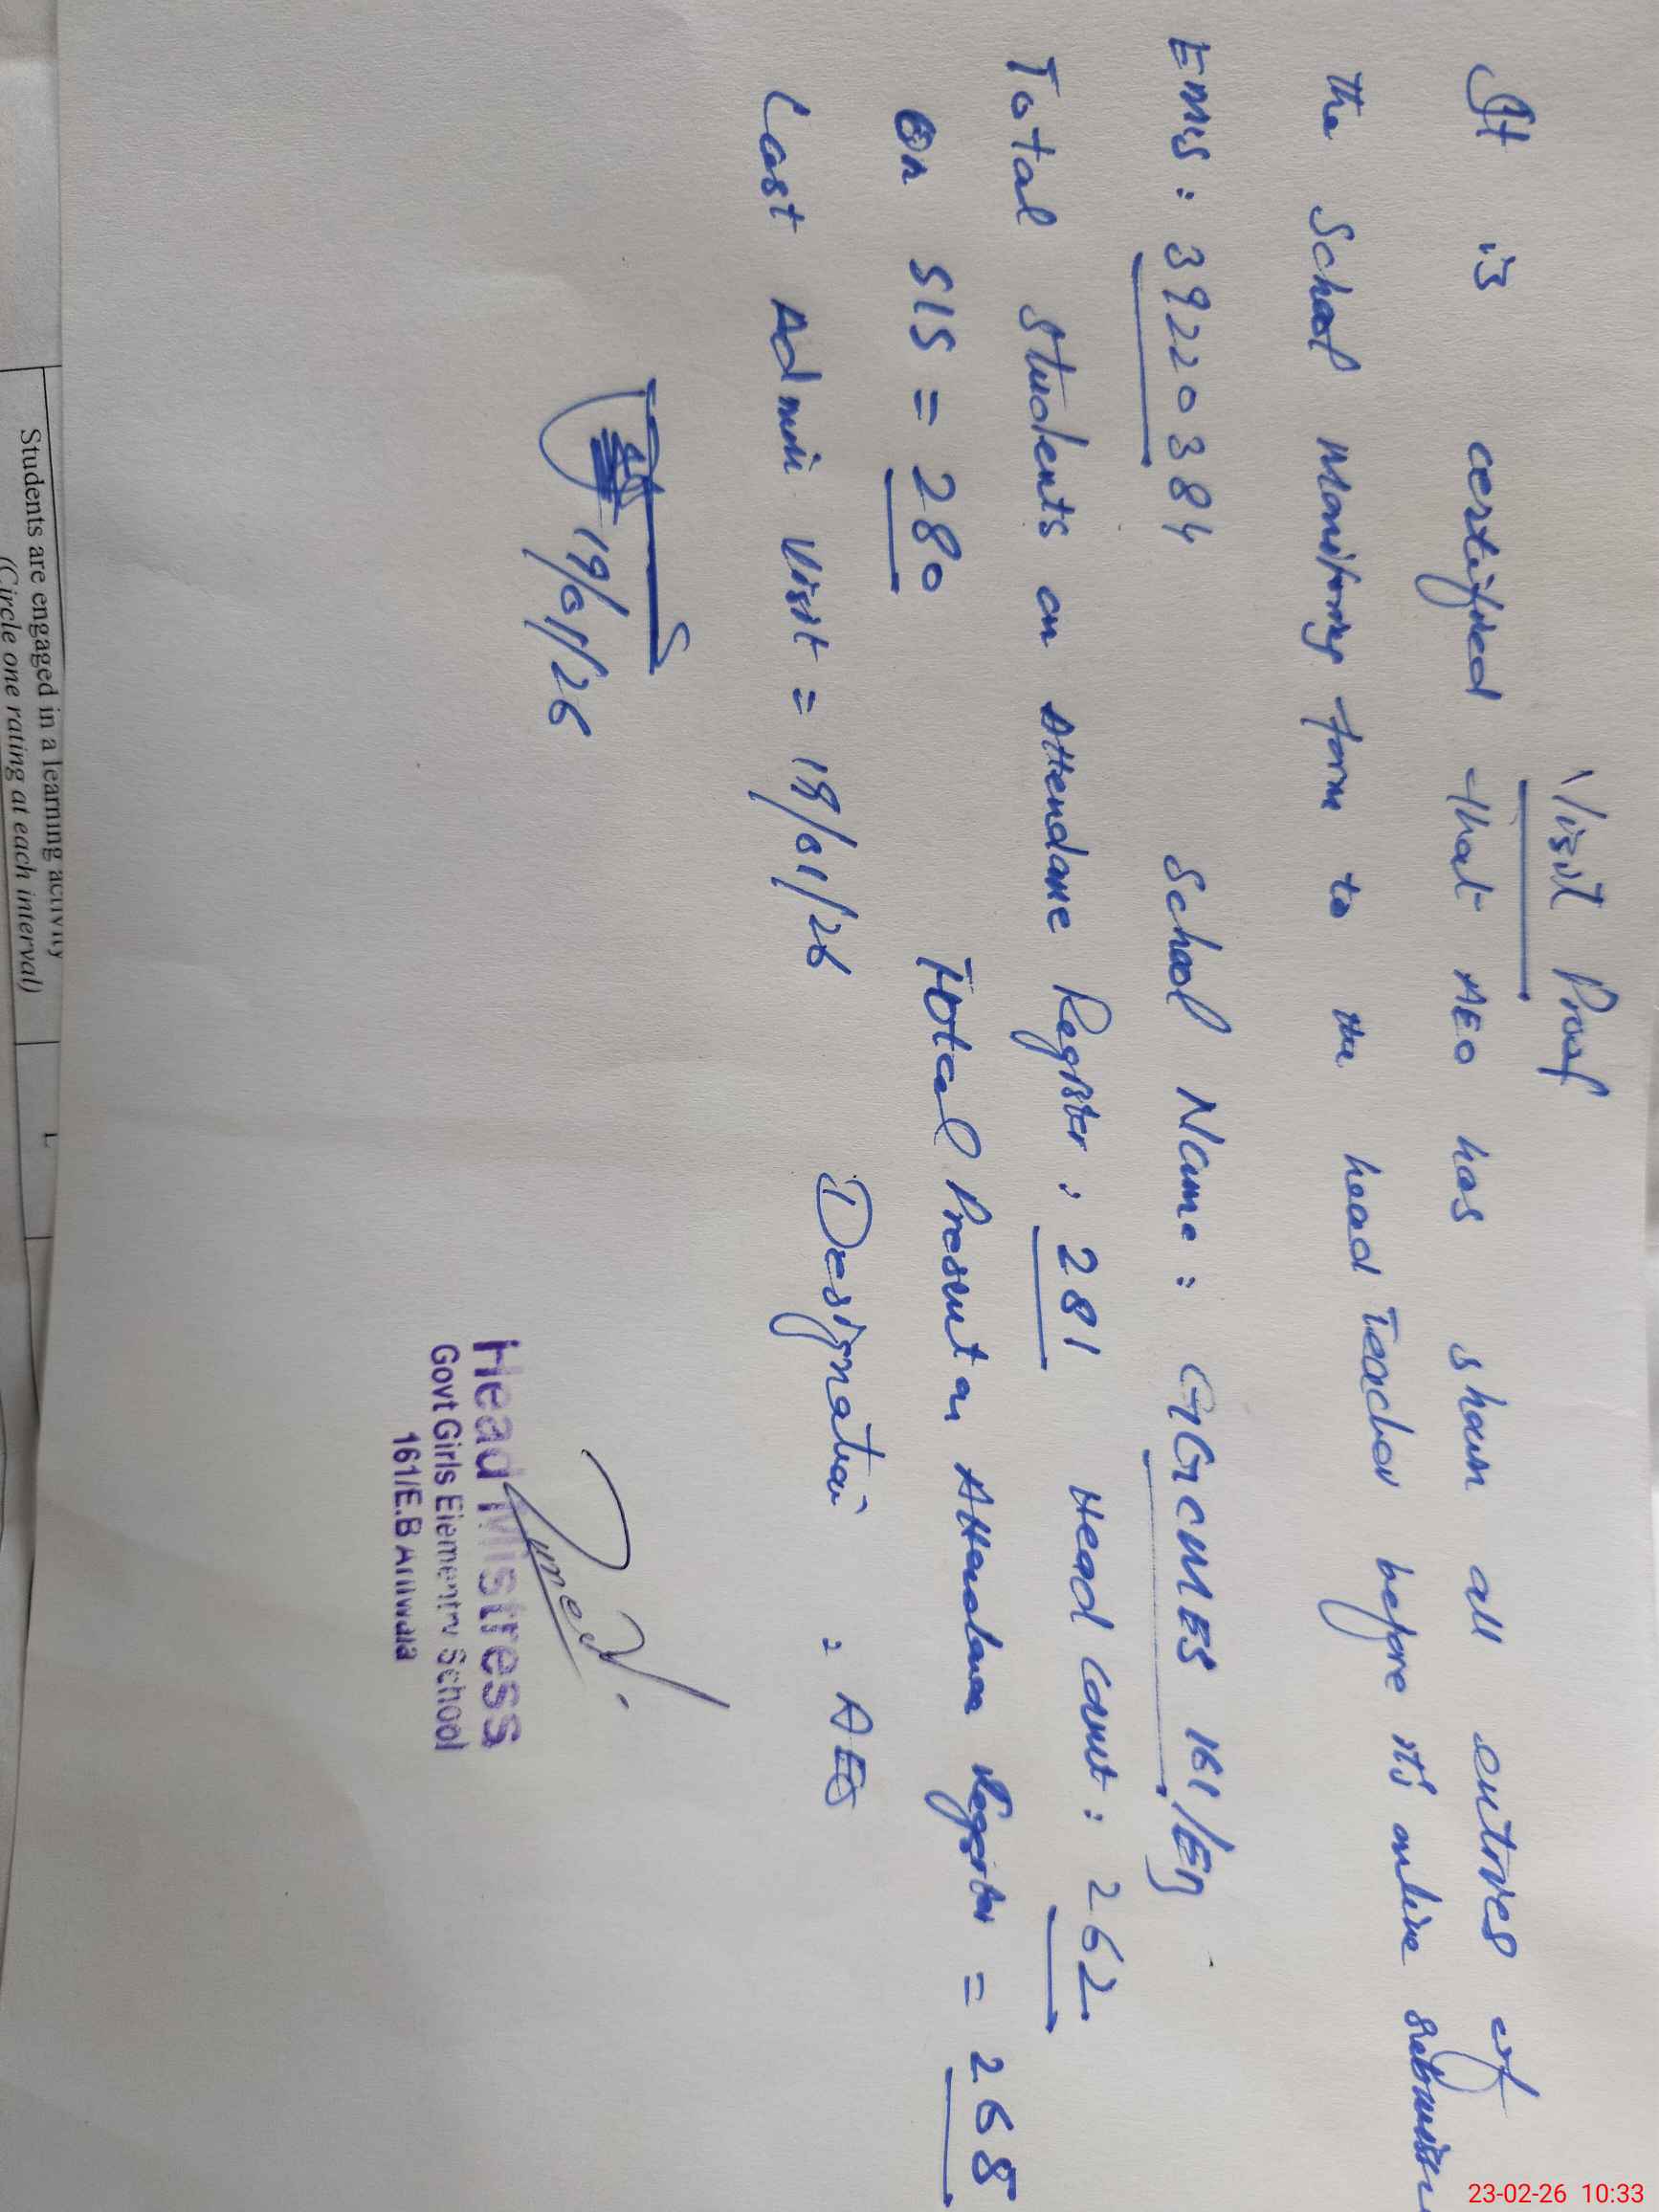 Visit Proof
It is certified that AEO has shown all entries of
the School Monitoring form to the head Teacher before its online submission
EMIS: 39220384 School Name: GGCMES 161/EB
Total Students on Attendance Register: 281 Head Count: 262
On SIS = 280 Total Present on Attendance Register = 268
Last Admin Visit = 19/01/26 Designation: AEO
19/01/26
Head Mistress
Govt Girls Elementry School
161/E.B Arifwala
Students are engaged in a learning activity
(Circle one rating at each interval)
L
23-02-26 10:33